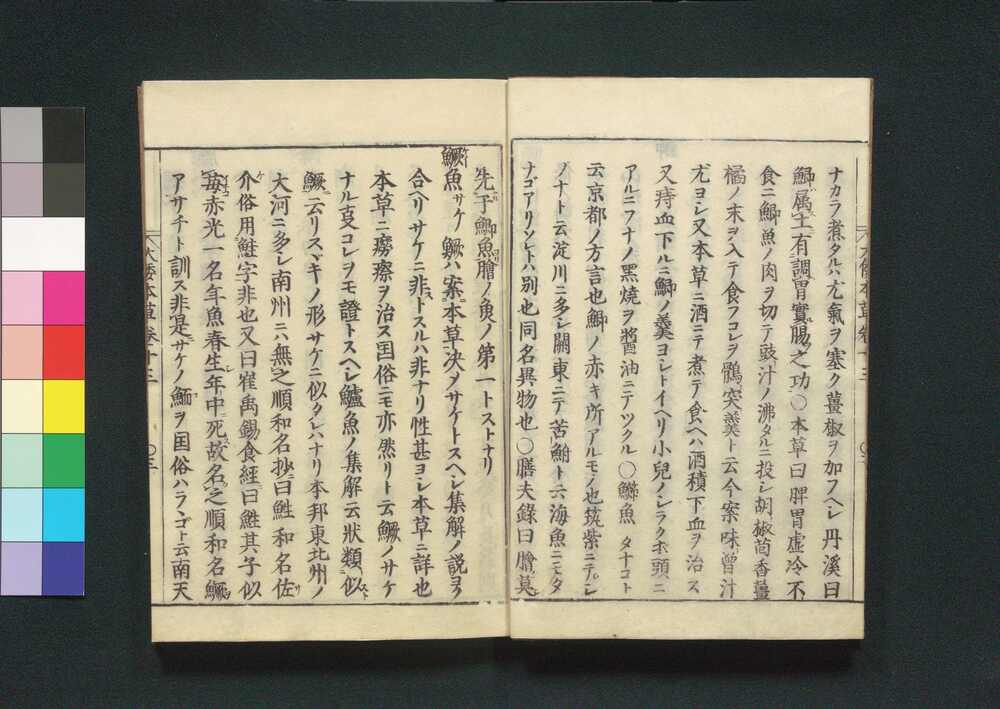 ナカラ煮タルハ尤氣ヲ塞ク薑椒ヲ加フヘシ丹溪曰
鯽属土有調胃實腸之功〇本草曰脾胃虚冷不
食ニ鯽魚ノ肉ヲ切テ豉汁ノ沸タルニ投シ胡椒茴香薑
橘ノ末ヲ入テ食フコレヲ鶻突羹ト云今案味曾汁
尤ヨシ又本草ニ酒ニテ煮テ食ヘハ酒積下血ヲ治ス
又痔血下ルニ鯽ノ羹ヨシトイヘリ小兒ノシラクホ頭ニ
アルニフナノ黒焼ヲ醬油ニテツクル〇鰷魚 タナコト
云京都ノ方言也鯽ノ赤キ所アルモノ也筑紫ニテシ
ノナト云淀川ニ多シ關東ニテ苦鮒ト云海魚ニモタ
ナゴアリソレトハ別也同名異物也〇膳夫錄曰膾莫
先于鯽魚膾ノ魚ノ第一トストナリ
鱖魚 サケ 鱖ハ案本草决メサケトスヘシ集解ノ説ヨク
合ヘリサケニ非トスルハ非ナリ性甚ヨシ本草ニ詳也
本草ニ癆瘵ヲ治ス国俗ニモ亦然リト云鱖ノサケ
ナル支コレヲモ證トスヘシ鱸魚ノ集解云状類似
鱖云リスヾキノ形サケニ似タレハナリ本邦東北州ノ
大河ニ多シ南州ニハ無之順和名抄曰鮏和名佐
介俗用鮭字非也又曰崔禹錫食經曰鮏其子似
苺赤光一名年魚春生年中死故名之順和名鱖
アサチト訓ス非是サケノ鮞ヲ国俗ハラヽゴト云南天
大倭本草卷十三 〇三